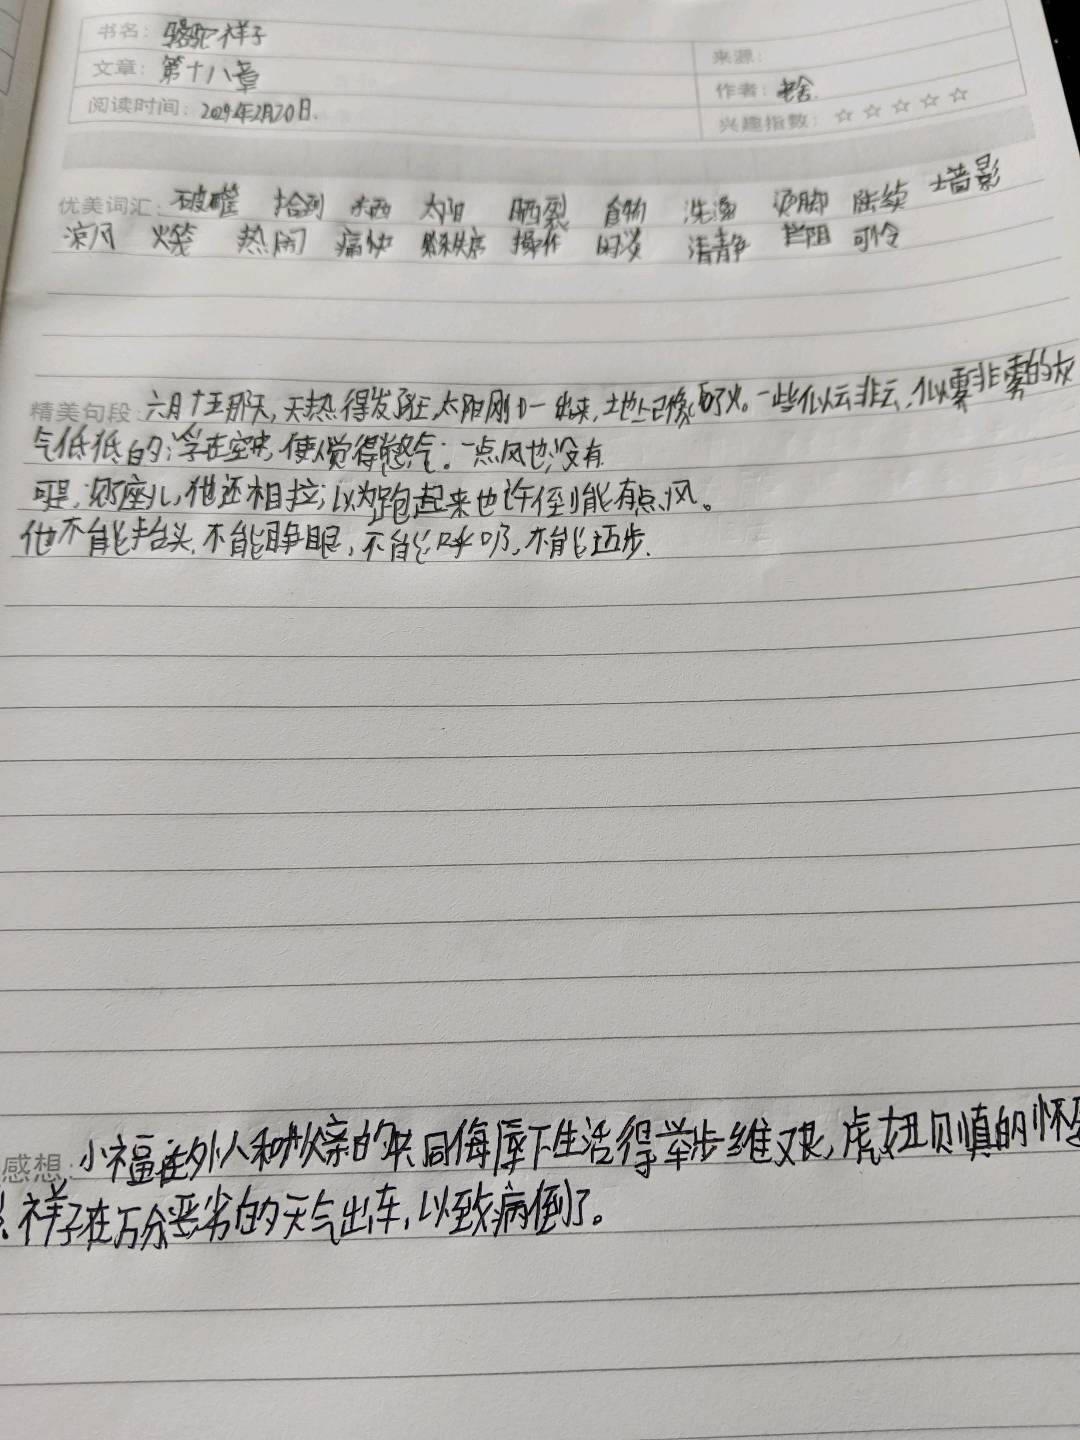 书名：骆驼祥子
来源：
文章：第十八章
作者：老舍
阅读时间：2024年2月20日.
兴趣指数：☆☆☆☆☆
优美词汇： 破罐 拾到 东西 太阳 晒裂 食物 洗澡 烫脚 陆续 墙影
凉风 火袋 热闹 痛快 操作 清静 拦阻 可怜
精美句段：六月十五那天,天热得发狂,太阳刚一出来,地上已像下了火。一些似云非云,似雾非雾的灰
气低低的浮在空中,使人觉得憋气。一点风也没有
可是,见座儿,他还想拉,以为跑起来也许倒能有点风。
他不能抬头,不能睁眼,不能呼吸,不能迈步.
感想：小福在外人和
亲的共同侮辱下生活得举步维艰,虎妞
的怀孕
祥子在万分恶劣的天气出车,以致病倒了。